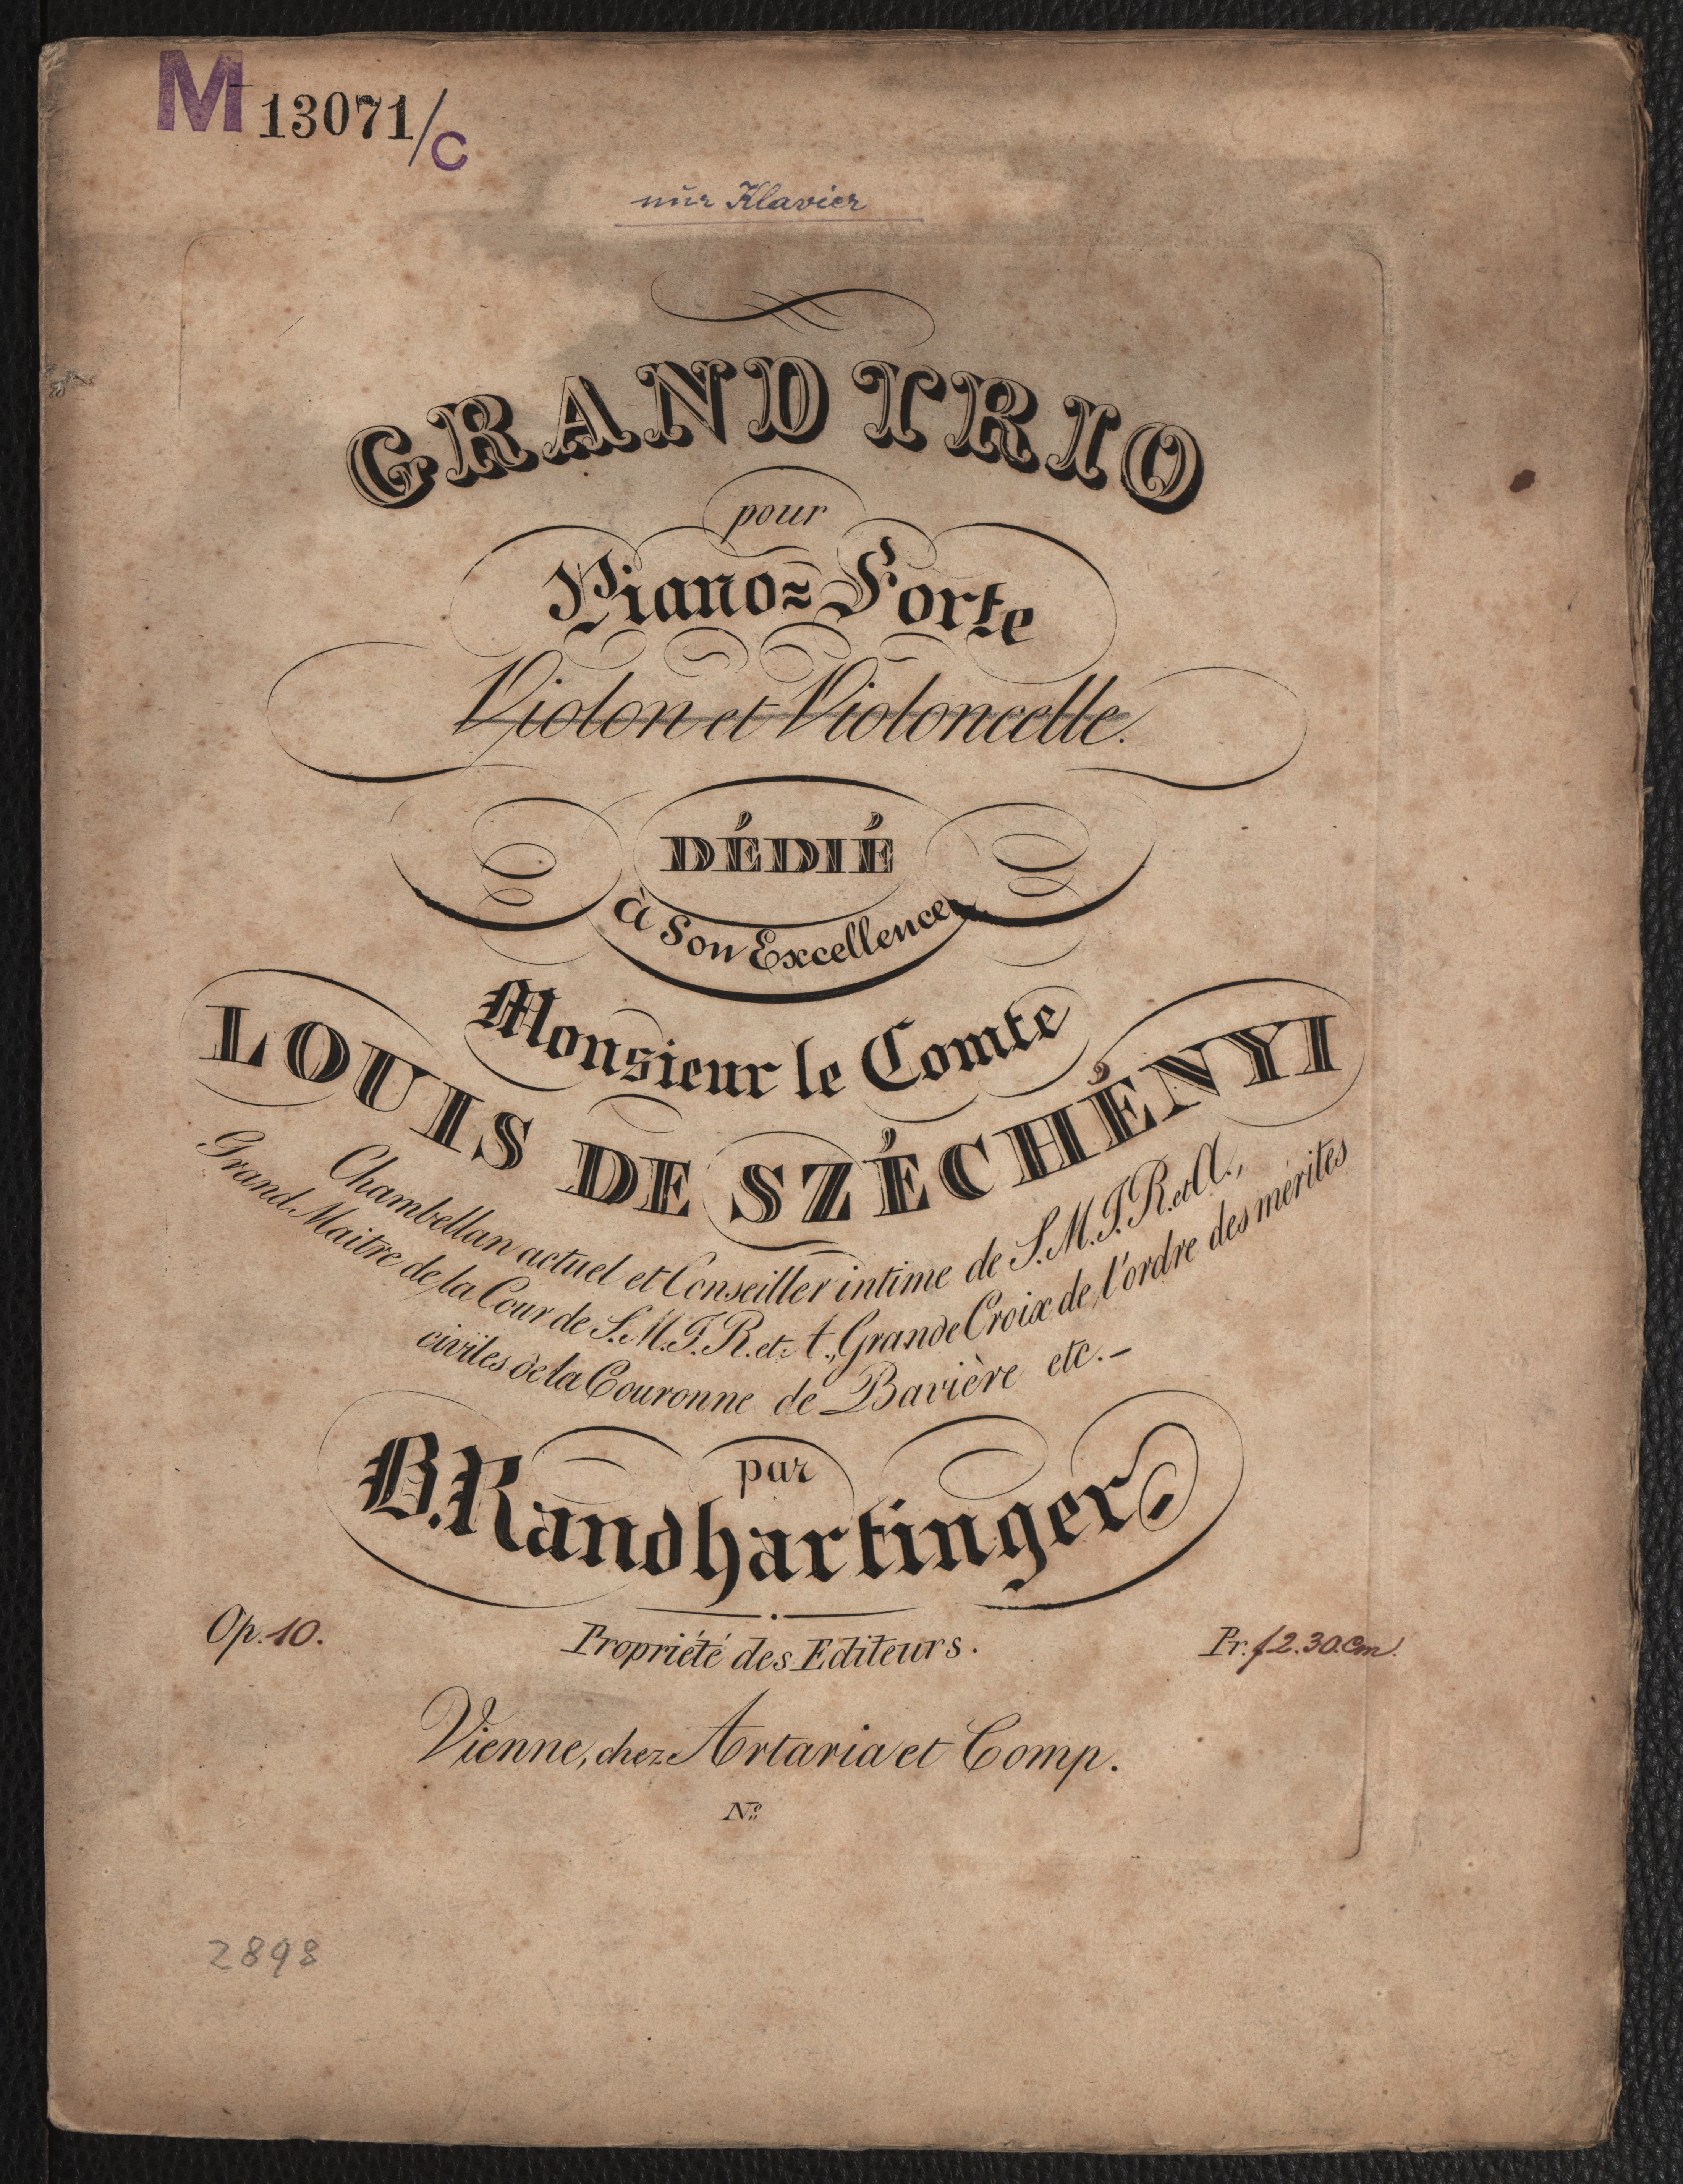 M 13071/C
nur Klavier
GRAND TRIO
pour
Piano=Forte
Violon et Violoncelle.
DÉDIÉ
à Son Excellence
Monsieur le Comte
LOUIS DE SZÉCHÉNYI
Chambellan actuel et Conseiller intime de S.M.I.R. et A.,
Grand Maitre de la Cour de S.M.I.R. et A., Grande Croix de l'ordre des mérites
civiles de la Couronne de Bavière etc.-
par
B. Randhartinger.
Op. 10.
Propriété des Editeurs.
Pr. f 2.30. Cm.
Vienne, chez Artaria et Comp.
No.
2898